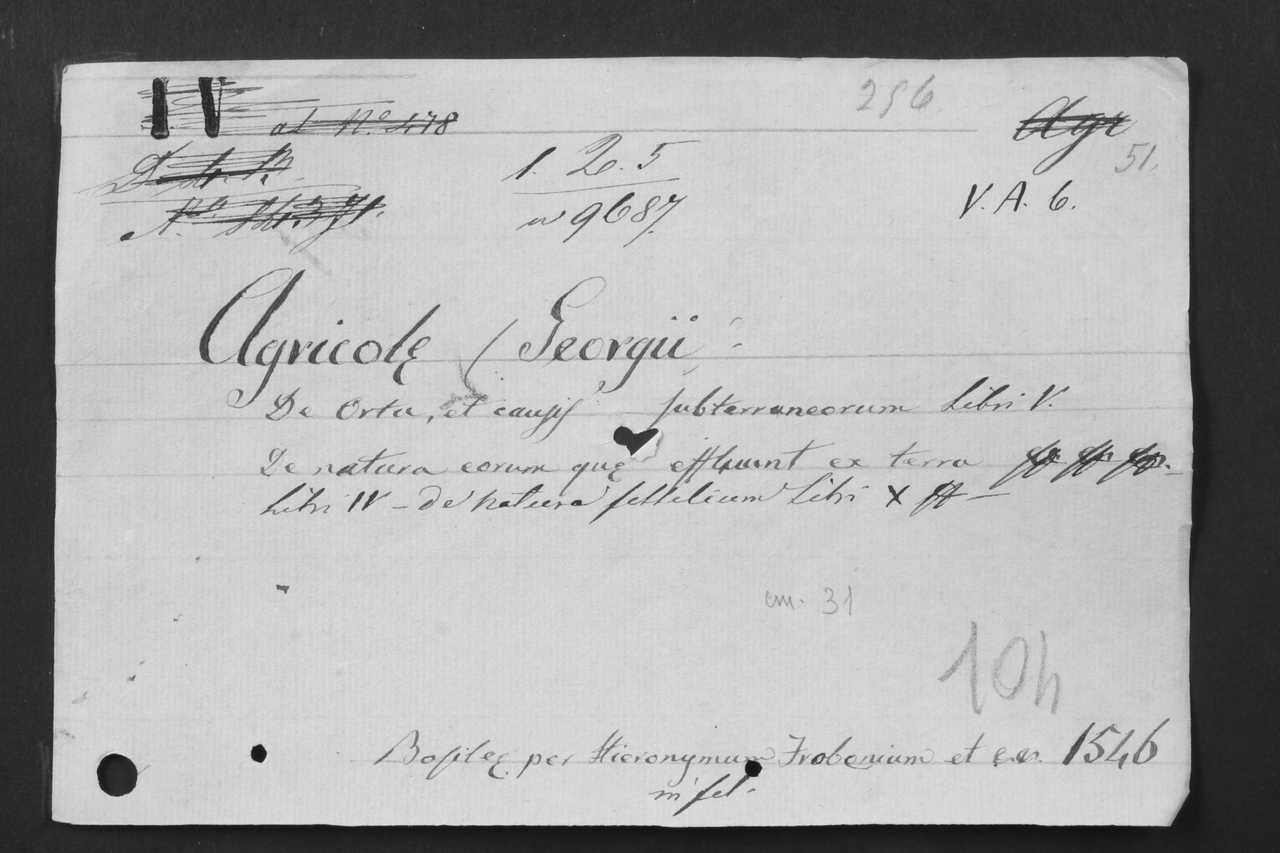 IV al Nº 478
256
Agr
51.
1. 2. 5
nº 9687.
V. A. 6.
Agricolę ( Georgii
De Ortu, et causis subterraneorum Libri V.
De natura eorum quę effluunt ex terra
Libri IV - de natura fossilium Libri X
cm. 31
104
Basileę per Hieronymum Frobenium et 1546
in fol.